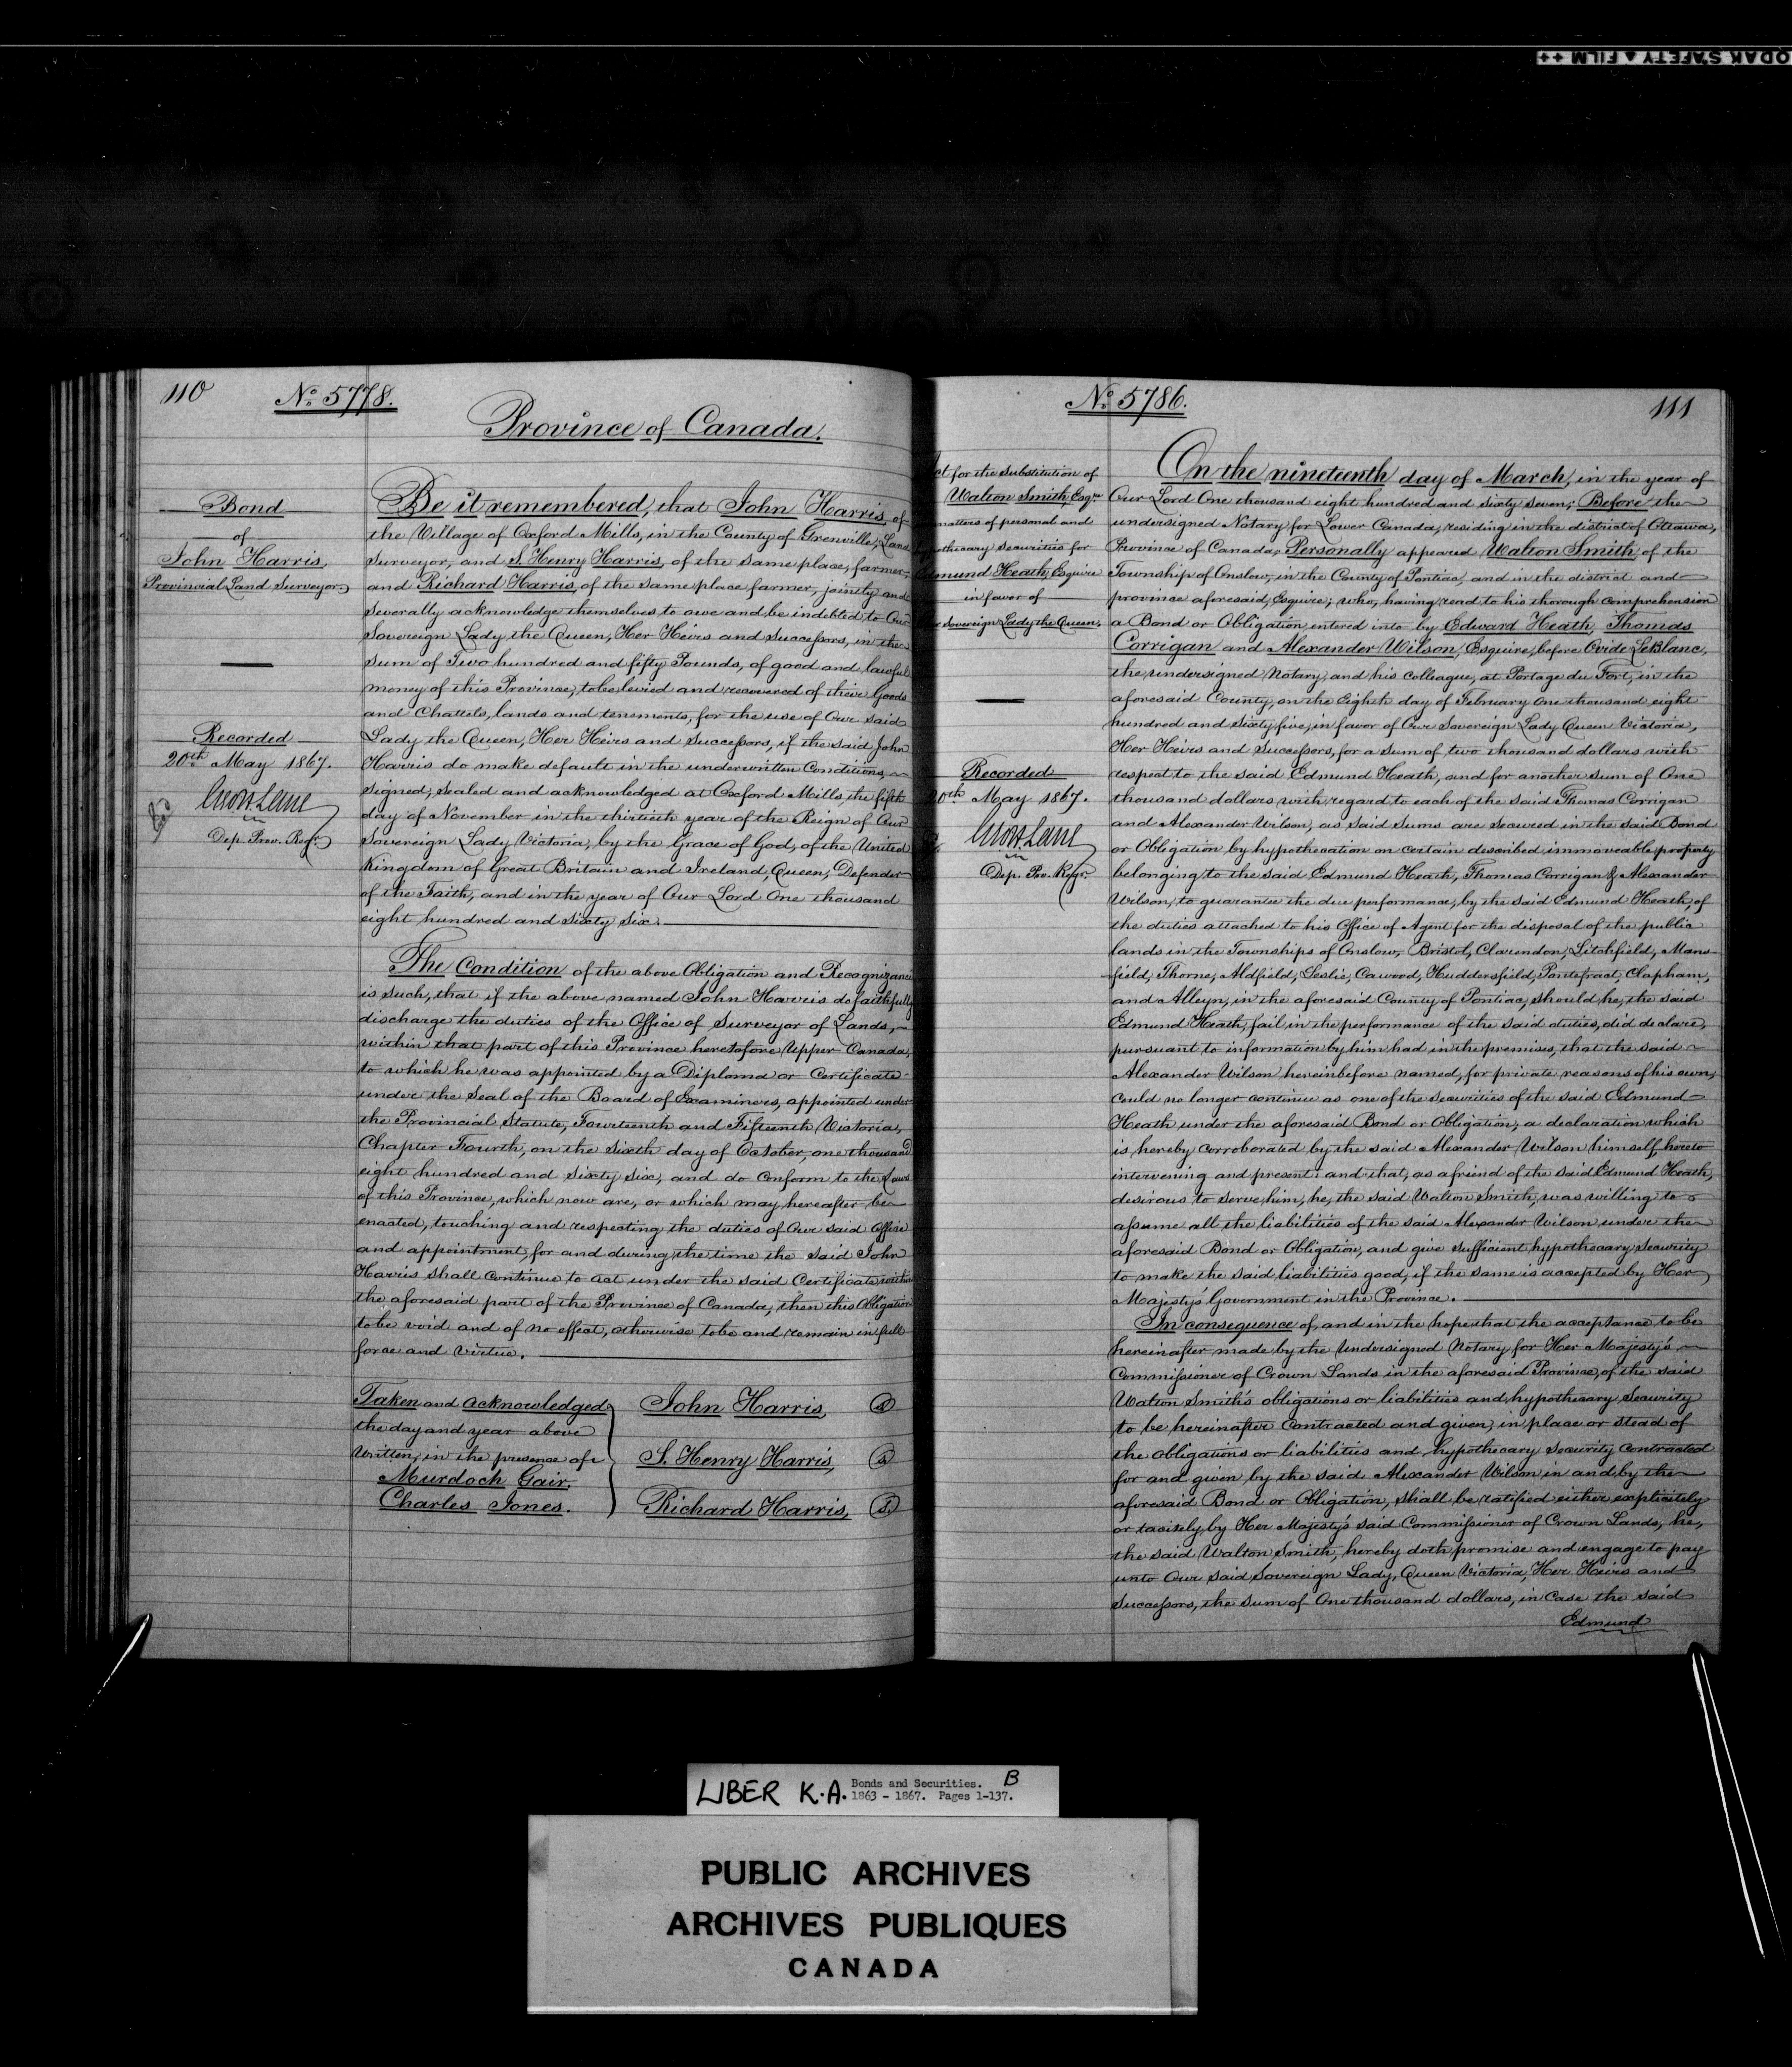 KODAK SAFETY FILM
110
No. 5778.
Province of Canada.
Bond
of
John Harris,
Provincial Land Surveyor
Recorded
20th May 1867.
Geo H. Lane
Dep. Prov. Regr.
Be it remembered, that John Harris of
the Village of Oxford Mills, in the County of Grenville, Land
Surveyor, and S. Henry Harris, of the same place, farmer,
and Richard Harris, of the same place farmer, jointly and
severally acknowledge themselves to owe and be indebted to Our
Sovereign Lady the Queen, Her Heirs and Successors, in the
sum of Two hundred and fifty Pounds, of good and lawful
money of this Province, to be levied and recovered of their Goods
and Chattels, lands and tenements, for the use of Our said
Lady the Queen, Her Heirs and Successors, if the said John
Harris do make default in the underwritten Conditions
signed, sealed and acknowledged at Oxford Mills the fifth
day of November in the thirtieth year of the Reign of Our
Sovereign Lady Victoria, by the Grace of God, of the United
Kingdom of Great Britain and Ireland, Queen, Defender
of the Faith, and in the year of Our Lord One thousand
eight hundred and sixty six.
The Condition of the above Obligation and Recognizance
is such, that if the above named John Harris do faithfully
discharge the duties of the Office of Surveyor of Lands,
within that part of this Province heretofore Upper Canada,
to which he was appointed by a Diploma or Certificate
under the Seal of the Board of Examiners, appointed under
the Provincial Statute, Fourteenth and Fifteenth Victoria,
Chapter Fourth, on the Sixth day of October, one thousand
eight hundred and sixty six, and do conform to the Laws
of this Province, which now are, or which may hereafter be
enacted, touching and respecting the duties of Our said Office
and appointment, for and during the time the said John
Harris shall continue to act under the said Certificate within
the aforesaid part of the Province of Canada, then this Obligation
to be void and of no effect, otherwise to be and remain in full
force and virtue.
Taken and acknowledged
the day and year above
written, in the presence of
Murdoch Gair.
Charles Jones.
John Harris,
S. Henry Harris,
Richard Harris,
No. 5786.
111
Act for the substitution of
Walton Smith, Esqre
matters of personal and
hypothecary securities for
Edmund Heath, Esquire
in favor of
Our Sovereign Lady the Queen.
Recorded
20th May 1867.
Geo H. Lane
Dep. Prov. Regr.
On the nineteenth day of March, in the year of
Our Lord One thousand eight hundred and sixty seven; Before the
undersigned Notary for Lower Canada, residing in the district of Ottawa,
Province of Canada, Personally appeared Walton Smith, of the
Township of Onslow, in the County of Pontiac, and in the district and
province aforesaid, Esquire; who, having read to his thorough comprehension
a Bond or Obligation entered into by Edward Heath, Thomas
Corrigan and Alexander Wilson, Esquire, before Ovide LeBlanc,
the undersigned Notary, and his colleague, at Portage du Fort, in the
aforesaid County, on the Eighth day of February One thousand eight
hundred and sixty five, in favor of Our Sovereign Lady Queen Victoria,
Her Heirs and Successors, for a sum of two thousand dollars with
respect to the said Edmund Heath, and for another sum of One
thousand dollars with regard to each of the said Thomas Corrigan
and Alexander Wilson, as said sums are secured in the said Bond
or Obligation by hypothecation on certain described immoveable property
belonging to the said Edmund Heath, Thomas Corrigan & Alexander
Wilson, to guarantee the due performance, by the said Edmund Heath, of
the duties attached to his Office of Agent for the disposal of the public
lands in the Townships of Onslow, Bristol, Clarendon, Litchfield, Mans-
field, Thorne, Aldfield, Leslie, Cawood, Huddersfield, Pontefract, Clapham,
and Alleyn, in the aforesaid County of Pontiac, should he, the said
Edmund Heath, fail in the performance of the said duties, did declare,
pursuant to information by him had in the premises, that the said
Alexander Wilson hereinbefore named, for private reasons of his own,
could no longer continue as one of the securities of the said Edmund
Heath under the aforesaid Bond or Obligation, a declaration which
is hereby corroborated by the said Alexander Wilson himself, hereto
intervening and present: and that, as a friend of the said Edmund Heath,
desirous to serve him, he, the said Walton Smith, was willing to
assume all the liabilities of the said Alexander Wilson under the
aforesaid Bond or Obligation, and give sufficient hypothecary security
to make the said liabilities good, if the same is accepted by Her
Majesty's Government in the Province.
In consequence of, and in the hope that the acceptance to be
hereinafter made by the Undersigned Notary for Her Majesty's
Commissioner of Crown Lands in the aforesaid Province, of the said
Walton Smith's obligations or liabilities and hypothecary Security
to be hereinafter contracted and given, in place or stead of
the obligations or liabilities and hypothecary security contracted
for and given by the said Alexander Wilson in and by the
aforesaid Bond or Obligation, shall be ratified either explicitely
or tacitely by Her Majesty's said Commissioner of Crown Lands, he,
the said Walton Smith, hereby doth promise and engage to pay
unto Our said Sovereign Lady, Queen Victoria, Her Heirs and
Successors, the sum of One thousand dollars, in case the said
Edmund
LIBER K.A. Bonds and Securities. B
1863 - 1867. Pages 1-137.
PUBLIC ARCHIVES
ARCHIVES PUBLIQUES
CANADA